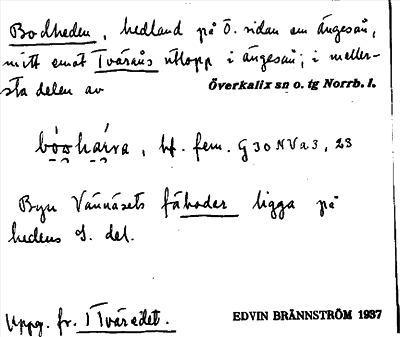 Bodheden, hedland på ö. sidan om Ängesån,
mitt emot Tväråns utlopp i Ängesån; i meller-
sta delen av
Överkalix sn o. tg Norrb. l.
bf. fem. G 30 N V a 3, 23
Byn Vännäsets fäbodar ligga på
hedens S. del.
Uppg. fr. 1 Tväredet.
EDVIN BRÄNNSTRÖM 1937